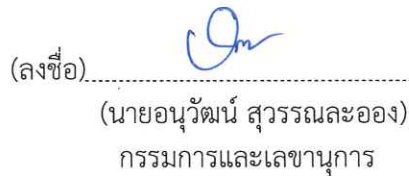 (ลงชื่อ)
(นายอนุวัฒน์ สุวรรณละออง)
กรรมการและเลขานุการ